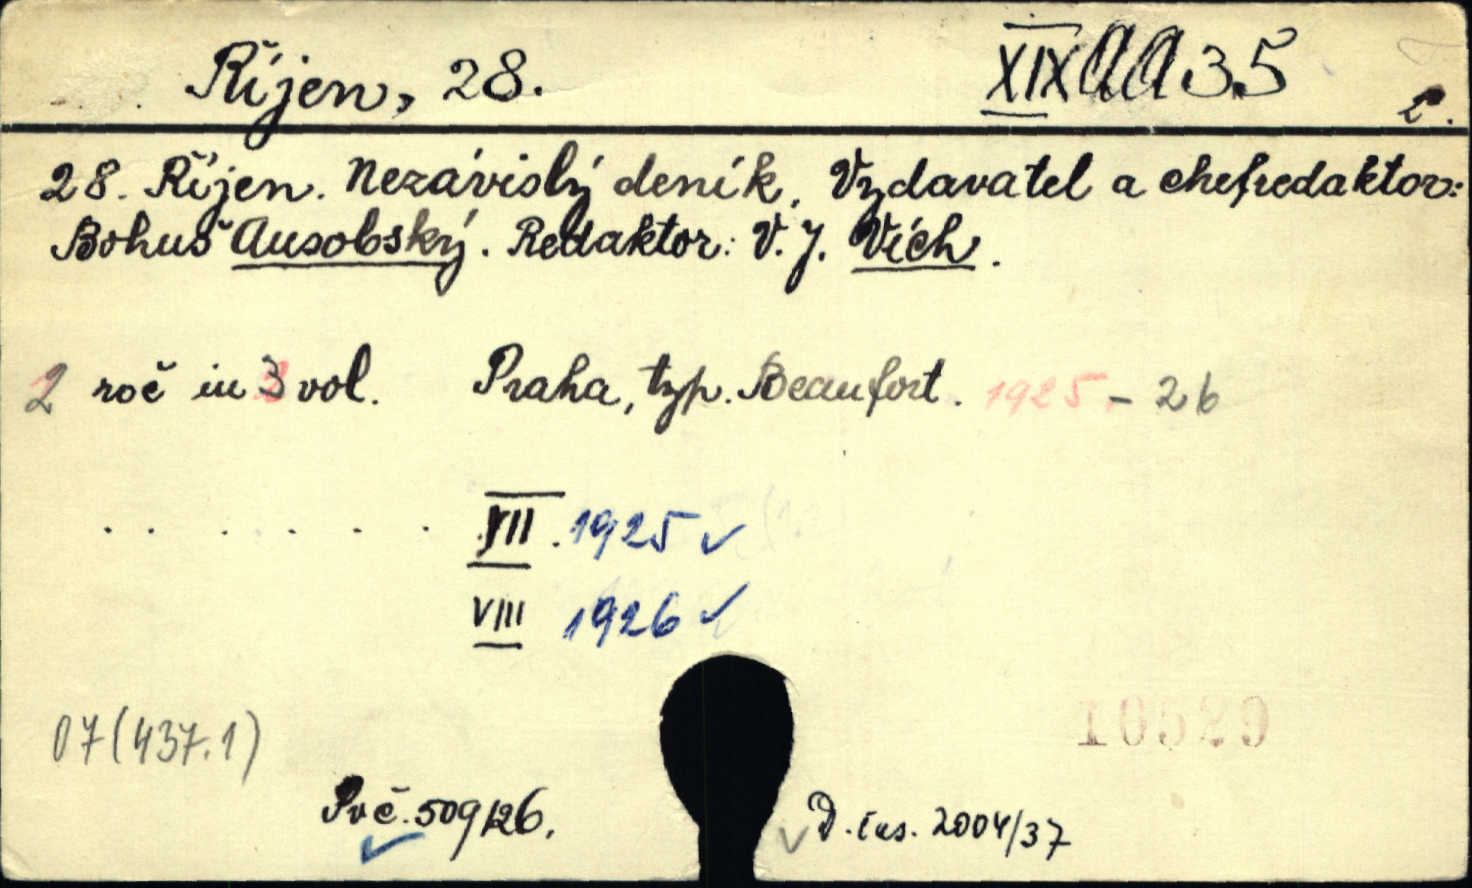 Říjen, 28.
XIX AA 35
2.
28. Říjen. Nezávislý deník. Vydavatel a chefredaktor:
Bohuš Ausobský. Redaktor: V. J. Vích.
2 roč in 3 vol. Praha, typ. Beaufort. 1925 - 26
. . . . . . VII. 1925 ✓
VIII 1926 ✓
07(437.1)
10529
Pvč. 509/26.
✓ D. čas. 2004/37